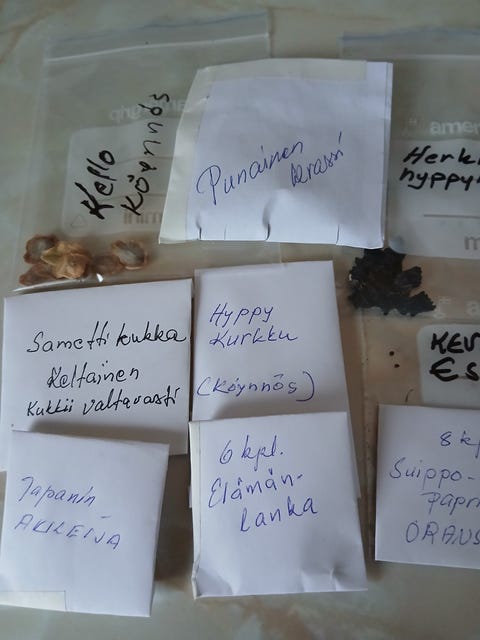 Kello
köynnös
Punainen
krassi
Samettikukka
Keltainen
Kukkii valtavasti
Hyppy
Kurkku
(Köynnös)
Japanin
AKILEIJA
6 kpl.
Elämän-
lanka
8 k
Suippo-
papri
ORANS